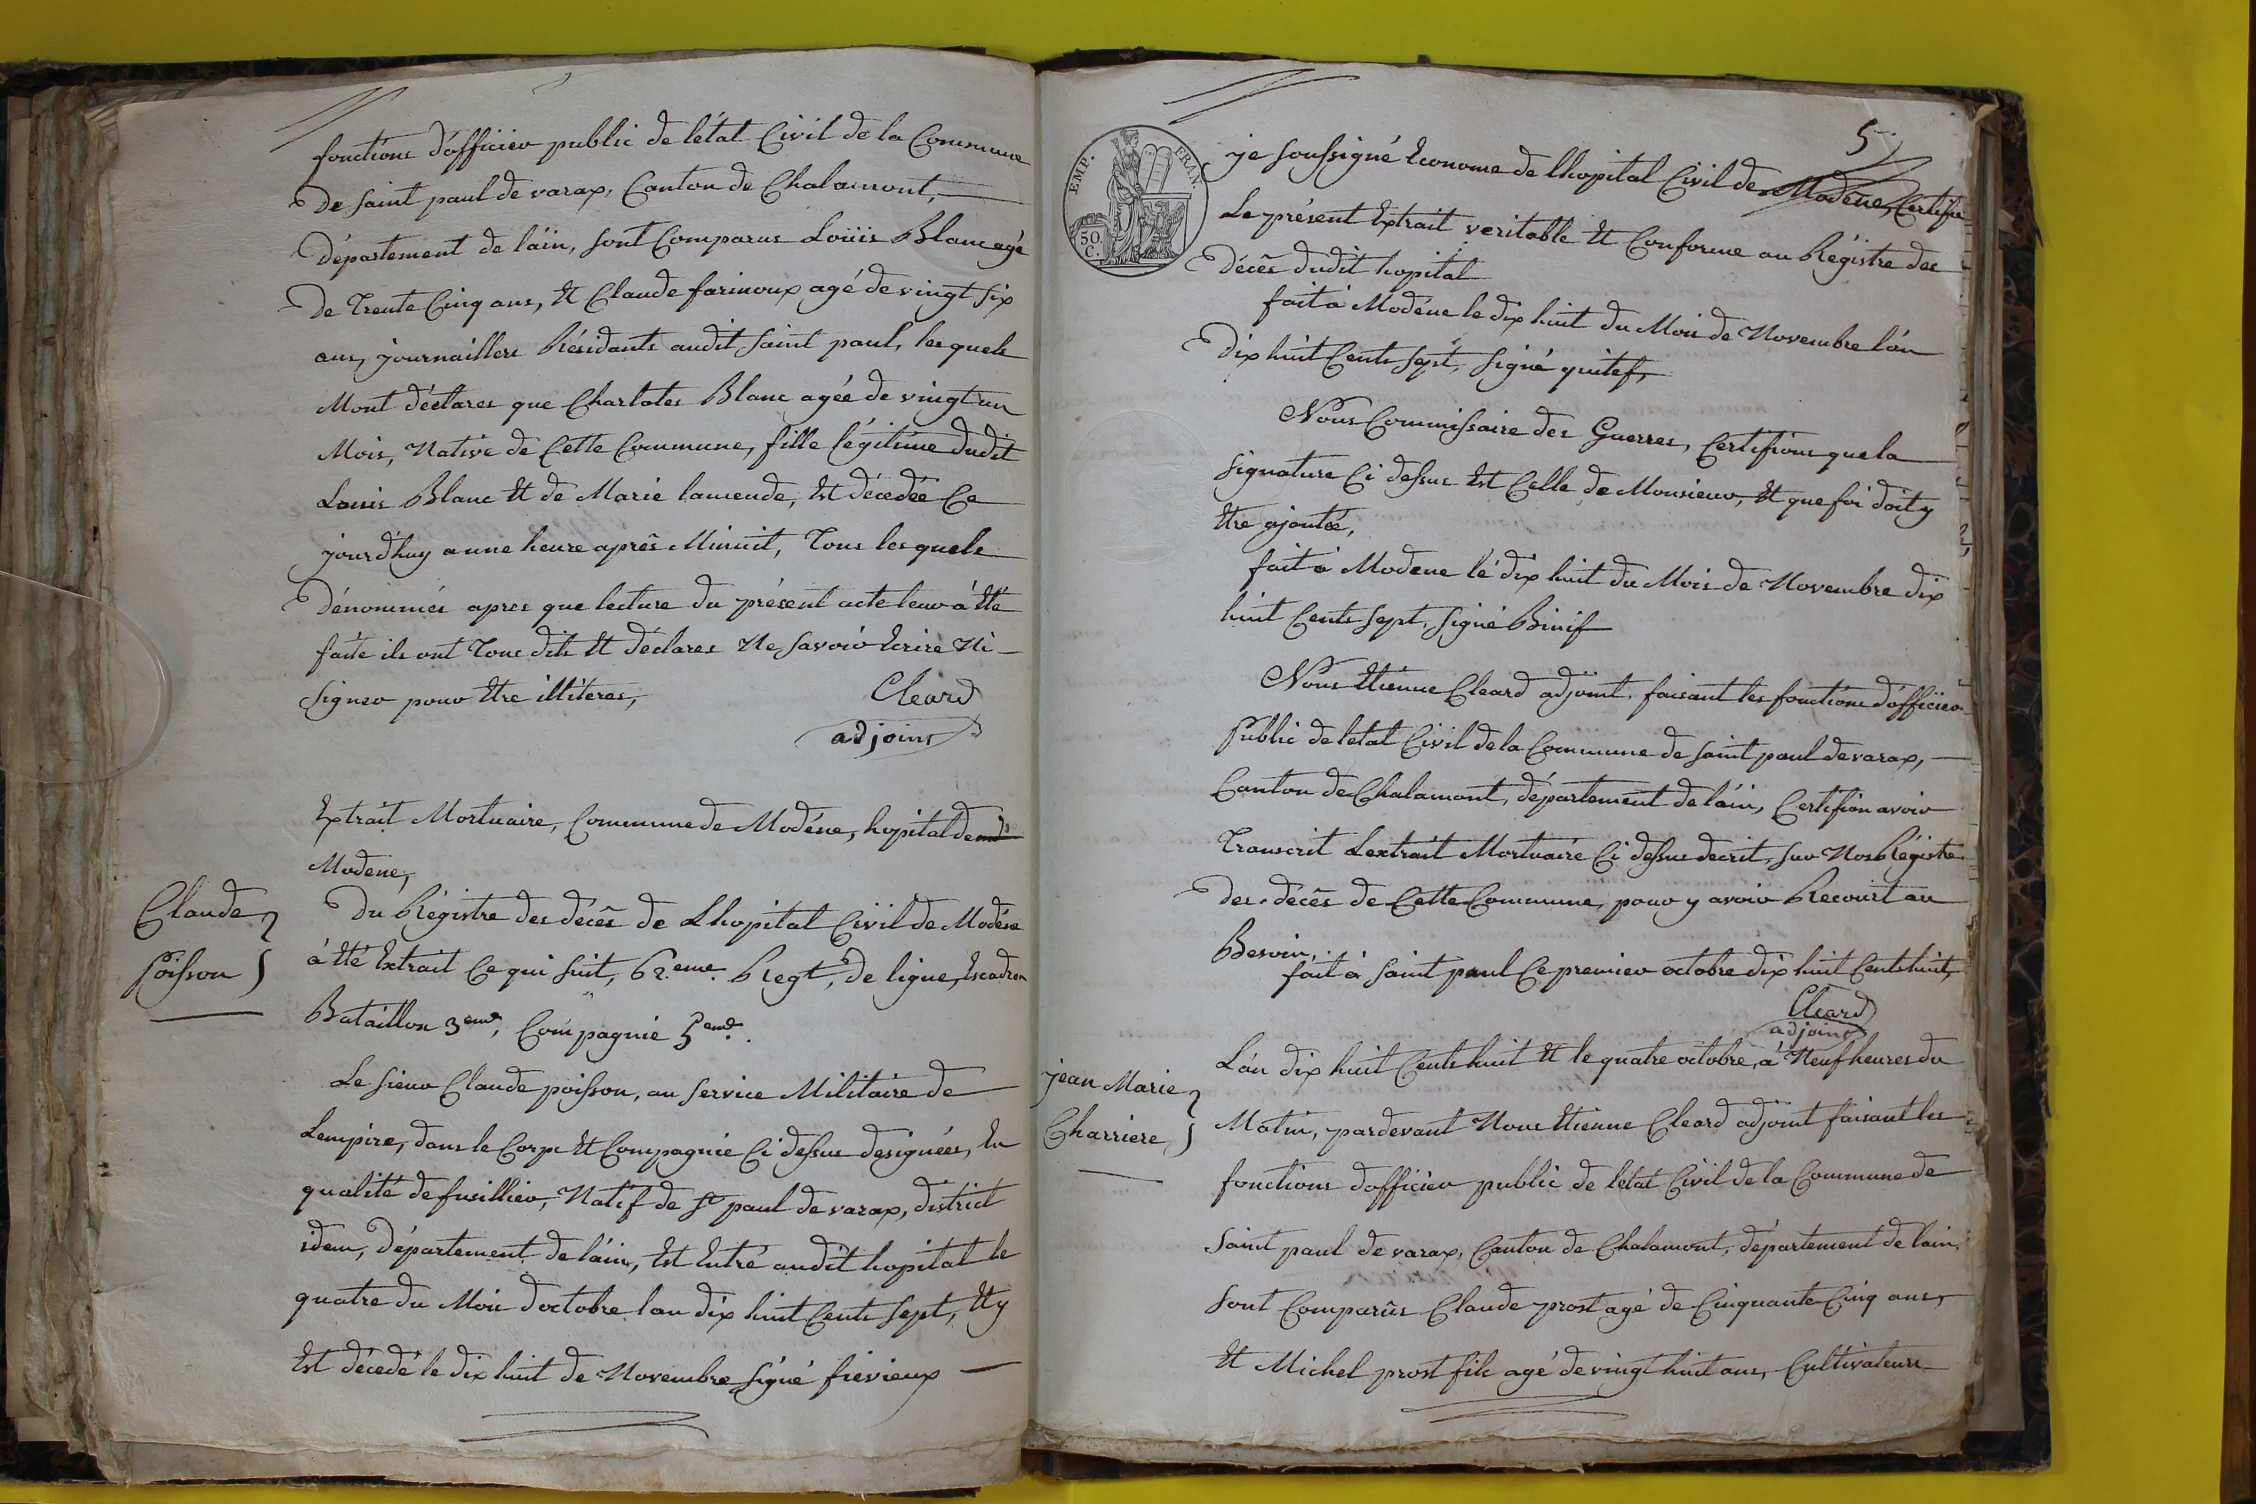 fonctions d'officier public de l'état Civil de la Commune
De saint paul de varax, Canton de Chalamont,
Département de láin, sont Comparus Loüis Blanc agé
De Trente Cinq ans, Et Claude farinoux agé de vingt six
ans, journaillers Résidants audit saint paul, lesquels
Mont déclares que Charlotes Blanc agéé de vingt un
Mois, Native de Cette Commune, fille légitime dudit
Louis Blanc Et de Marie lamende, Est décedéé Ce
jourd'huy a une heure aprês Minuit, Tous lesquels
Dénommés apres que lecture du présent acte leur à Eté
faite ils ont Tous dits Et déclares Ne savoir Ecrire Ni
signer pour Etre illiteres,
Cleard
adjoint
Extrait Mortuaire, Commune de Modéne, hopital de
Modene,
Claude
Poisson
Du Régistre des décês de Lhopital Civil de Modéne
à Eté Extrait Ce qui suit, 62.eme Regt, de ligne, Escadron
Bataillon 3eme, Compagnie 5eme.
Le sieur Claude poisson, au service Militaire de
Lempire, dans le Corps Et Compagnie Ci dessus designées, En
qualité de fusillier, Natif de St paul de varax, district
idem, Département de láin, Est Entré audit hopital le
quatre du Mois doctobre lan dix huit Cents sept, Et y
Est décedé le dix huit de Novembre signé frevieux
5
EMP. FRAN.
50.
C.
je soussigné Econome de lhopital Civil de Modéne, Certifie
Le présent Extrait veritable Et Conforme au Régistre des
Décês dudit hopital
fait à Modéne le dix huit du Mois de Novembre lán
Dix huit Cents sept, signé quitef,
Nous Commissaire des Guerres, Certifions que la
signature Ci dessus Est Celle de Monsieur, Et que foi doit y
Etre ajoutéé,
fait à Modene le dix huit du Mois de Novembre dix
huit Cents sept, signé Binif
Nous Etienne Cleard adjoint, faisant les fonctions d'officier
Public de letat Civil de la Commune de saint paul de varax,
Canton de Chalamont, département de láin, Certifion avoir
Transcrit Lextrait Mortuaire Ci dessus decrit, sur Nos Régistres
Des décês de Cette Commune, pour y avoir Recourt au
Besoin,
fait à saint paul Ce premier octobre dix huit Cents huit,
Cleard
adjoint
jean Marie
Charriere
Lán dix huit Cents huit Et le quatre octobre, à Neuf heures du
Matin, pardevant Nous Etienne Cleard adjoint faisant les
fonctions dofficier public de letat Civil de la Commune de
saint paul de varax, Canton de Chalamont, département de lain,
sont Comparûs Claude prost agé de Cinquante Cinq ans,
Et Michel prost fils agé de vingt huit ans, Cultivateurs